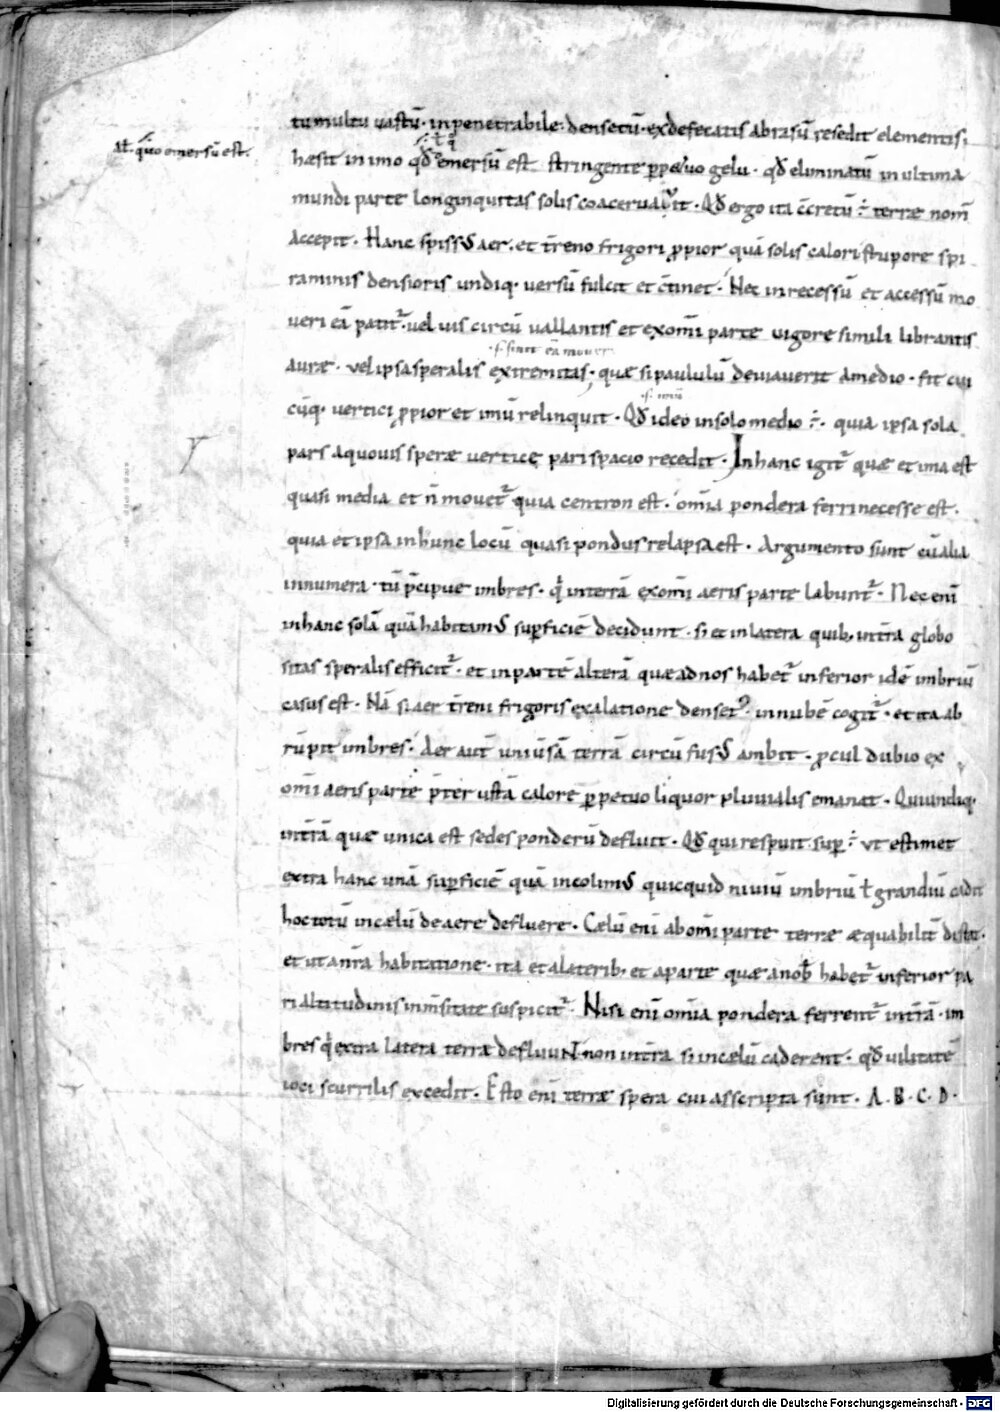 tumultu uastū· inpenetrabile· densetū· exdefecatis abrasū resedit elementis;
Al̄. quo emersū est.
hæsit in imo qđ emersū est stringente ꝑpetuo gelu· qđ eliminatū in ultima
mundi parte longinquitas solis coaceruauit· Qđ ergo ita c̄cretū ÷ terræ nom̄
accepit· Hanc spissꝰ aer· et t̄reno frigori ꝓpior quā solis calori stupore spi
raminis densioris undiq· uersū fulcit et c̄tinet· Nec in recessū et accessū mo
ueri eā patit᷑· uel uis circū uallantis et exomī parte uigore simili librantis
.s. sinit eā moueri
auræ· vel ipsa speralis extremitas· quæ si paululū deuiauerit amedio· fit cui
cūq· vertici ꝓpior et imū relinquit· Qđ ideo in solo medio ÷· quia ipsa sola
pars aquouis speræ uertice pari spacio recedit· In hanc igit᷑ quæ et ima est
quasi media et n̄ mouet᷑ quia centron est· om̄ia pondera ferri necesse est.
quia et ipsa in hunc locū quasi pondus relapsa est· Argumento sunt cū alia
innumera· tū p̄cipue imbres· q̄ in terrā exomī aeris parte labunt᷑· Nec enī
in hanc solā quā habitamꝰ suꝑficiē decidunt· s; et in latera quib; int̄ra globo
sitas speralis efficit᷑· et in partē alterā quæ ad nos habet᷑ inferior idē imbriū
casus est· Nā si aer t̄reni frigoris exalatione denset᷑ in nubē cogit᷑· et ita ab
rūpit imbres· Aer aut̄ uniuersā terrā circū fusꝰ ambit· ꝓcul dubio ex
omī aeris parte p̄ter ustā calore ꝑpetuo liquor pluuialis emanat· Qui undiq·
int̄rā quæ unica est sedes ponderū defluit· Qđ qui respuit suꝑ ÷ vt estimet
extra hanc unā suꝑficiē quā incolimꝰ quicquid niuiū imbriū ł grandiū cadit
hoc totū in cælū de aere defluere· Cælū enī ab omī parte terræ æquabilit̄ distat·
et ut an̄ra habitatione· ita et alaterib; et aparte quæ anob̄ habet᷑ inferior pa
ri altitudinis inm̄sitate suspicit᷑· Nisi enī om̄ia pondera ferrent᷑ int̄rā· im
bres q̄ extra latera terræ defluunt· non int̄ra s; in cælū caderent· qđ uilitatē
ioci scurrilis excedit· Esto enī terræ spera cui asscripta sunt· A· B· C· D·